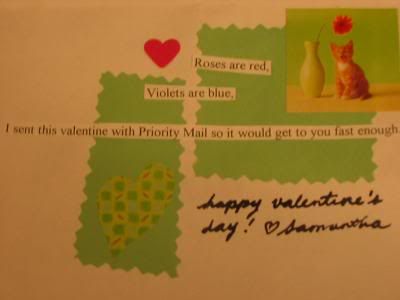 Roses are red,
Violets are blue,
I sent this valentine with Priority Mail so it would get to you fast enough.
happy valentine's
day! ♡ Samantha